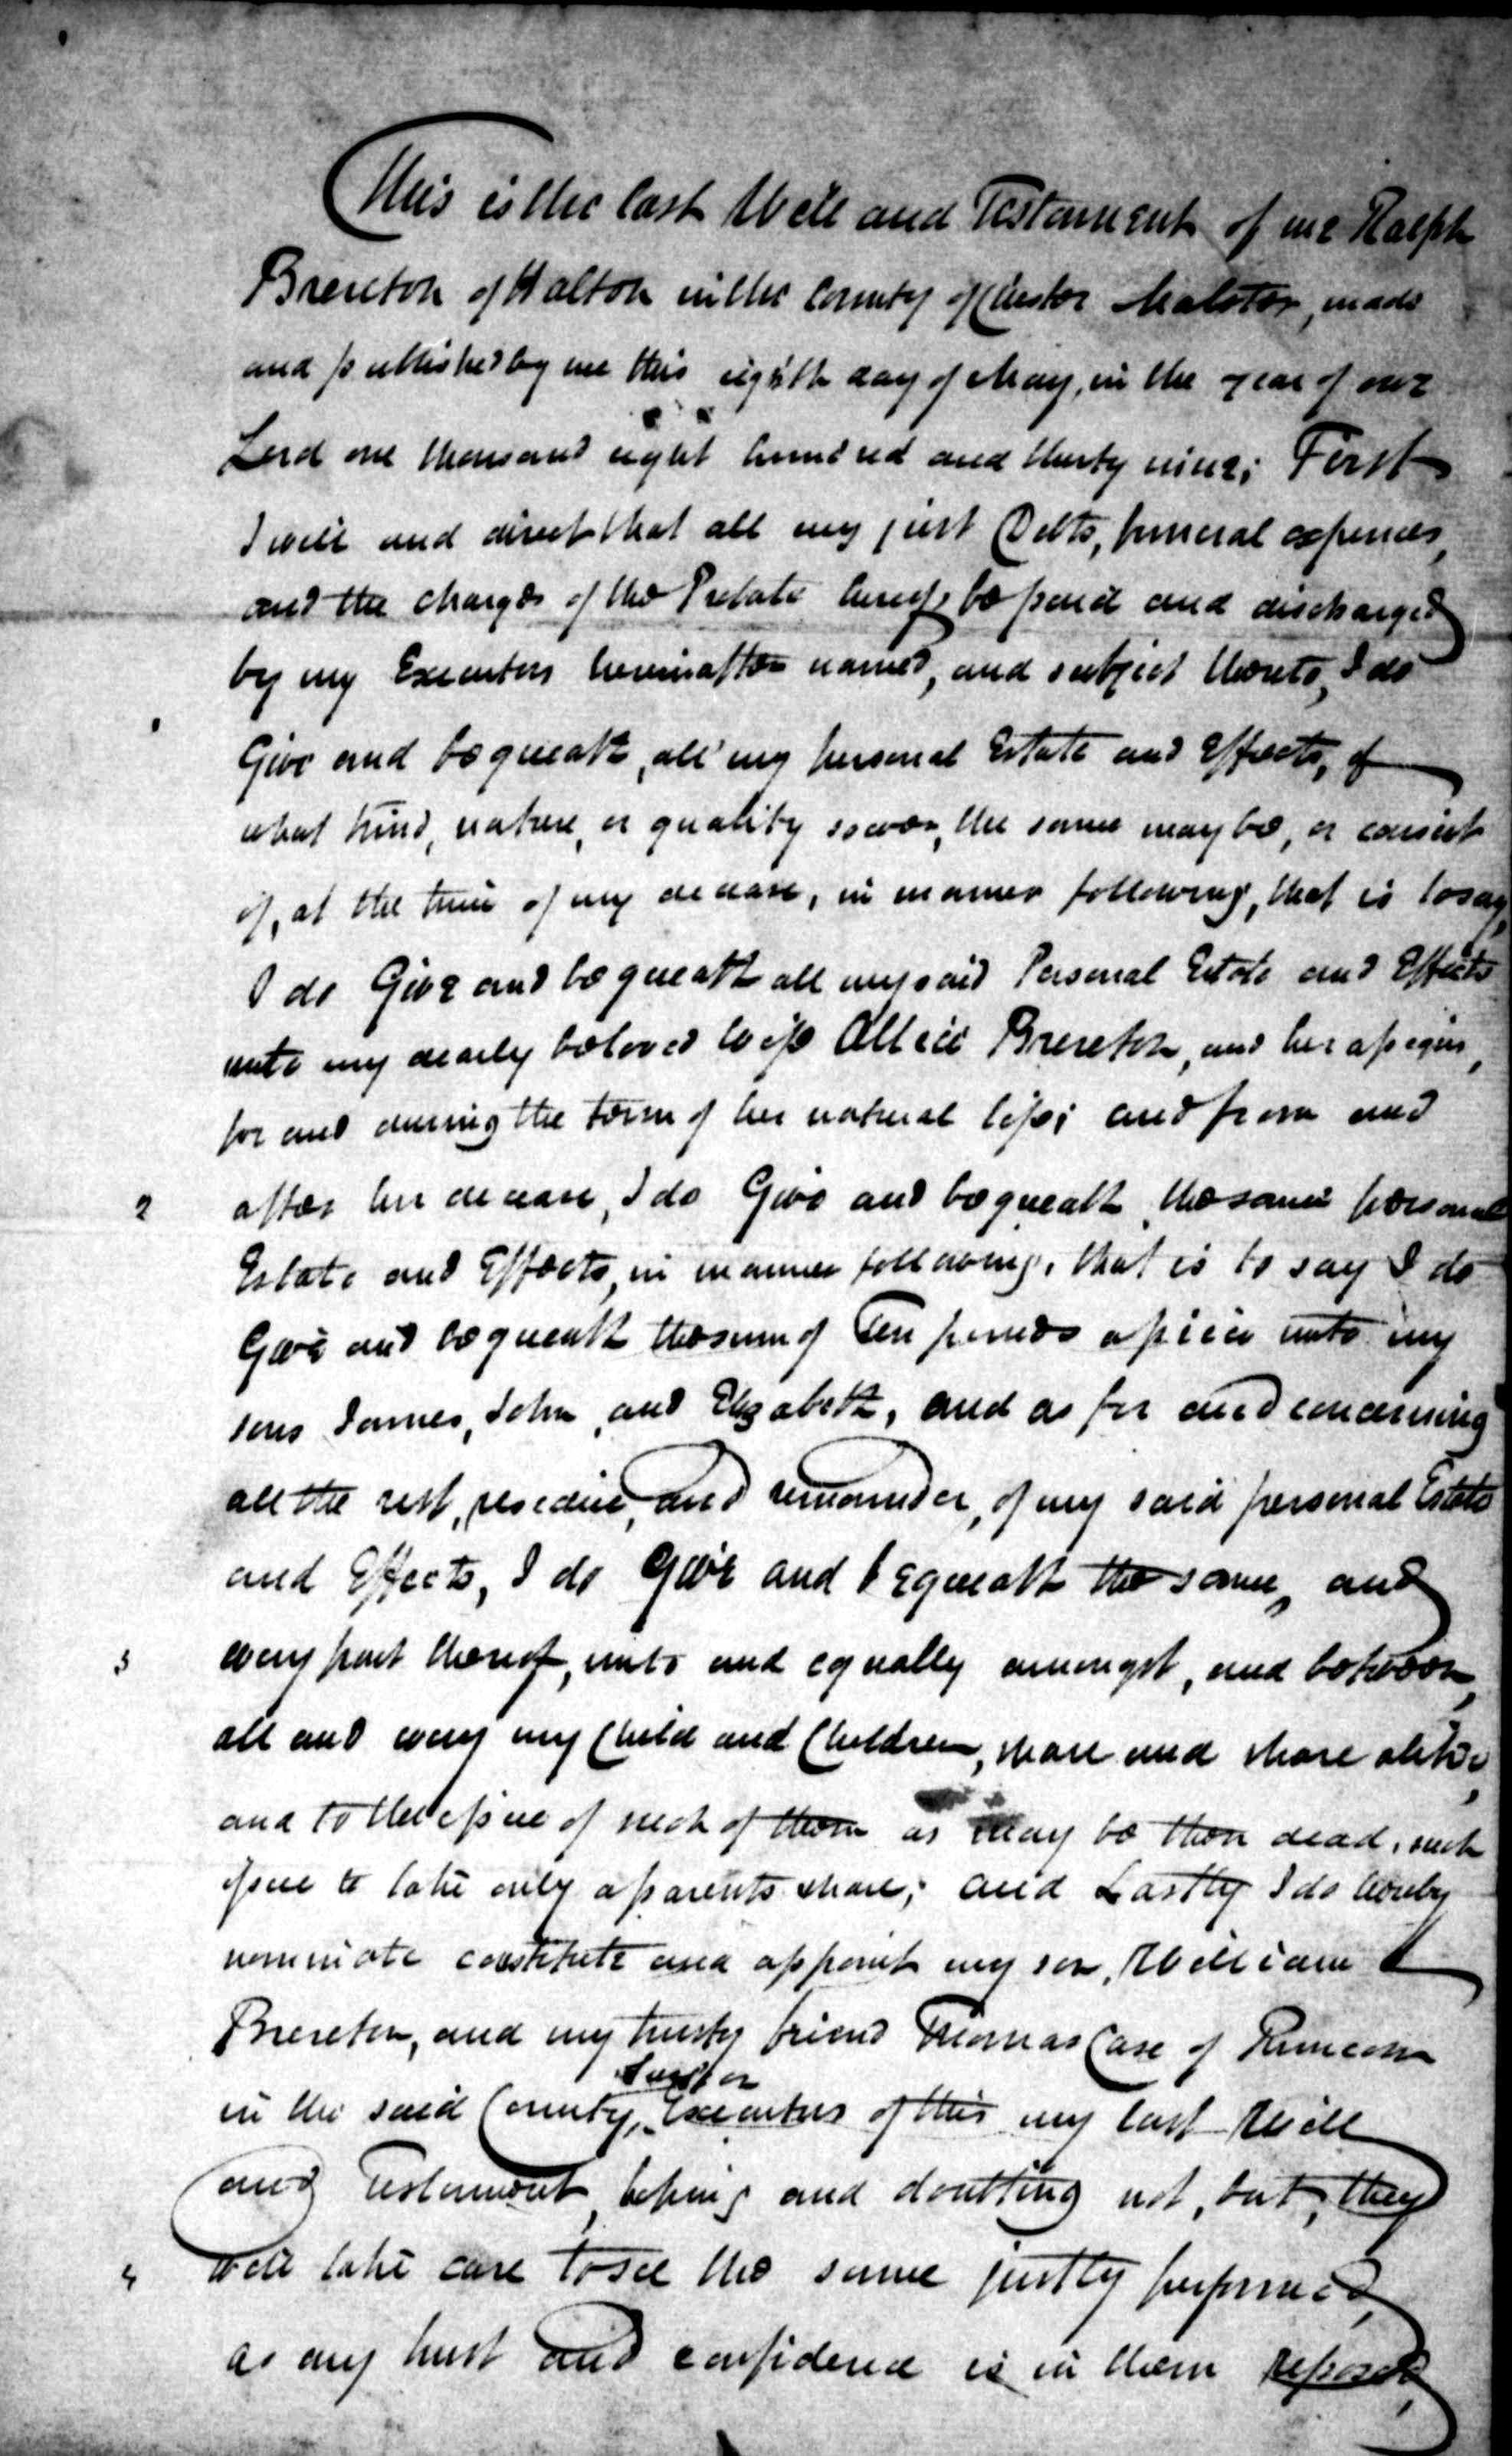 This is the last Will and Testament of me Ralph
Brereton of Halton in the County of Chester Malster, made
and published by me this eighth day of May, in the year of our
Lord one thousand eight hundred and thirty nine; First
I will and direct that all my just Debts, funeral expences,
and the charges of the Probate hereof, be paid and discharged
by my Executors hereinafter named, and subject thereto, I do
Give and bequeath, all my personal Estate and Effects, of
what kind, nature, or quality soever, the same may be, or consist
of, at the time of my decease, in manner following, that is to say,
I do Give and bequeath all my said Personal Estate and Effects
unto my dearly beloved wife Allice Brereton, and her assigns,
for and during the term of her natural life; and from and
2 after her decease, I do Give and bequeath, the same personal
Estate and Effects, in manner following, that is to say I do
Give and bequeath the sum of Ten pounds apiece unto my
sons James, John, and Elizabeth, and as for and concerning
all the rest, residue, and remainder, of my said personal Estate
and Effects, I do Give and bequeath the same, and
3 every part thereof, unto and equally amongst, and between,
all and every my Child and Children, share and share alike,
and to the issue of such of them as may be then dead, such
issue to take only a parents share; and Lastly I do hereby
nominate constitute and appoint my son, William
Brereton, and my trusty friend Thomas Case of Runcorn
in the said County, Executors of this my last Will
and Testament, hoping and doubting not, but, they
4 will take care to see the same justly performed,
as my trust and confidence is in them reposed,